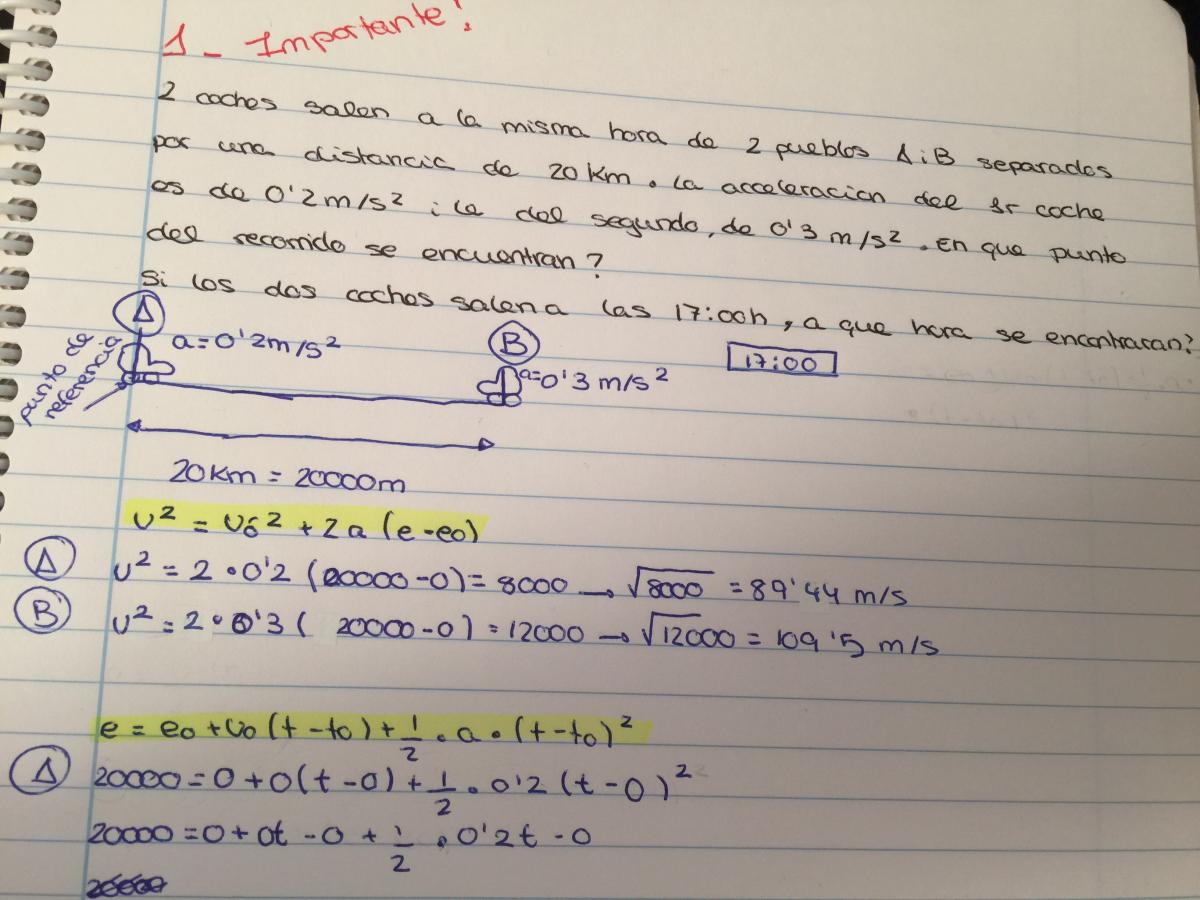 1 - Importante!
2 coches salen a la misma hora de 2 pueblos A i B separados
por una distancia de 20 Km. la acceleracion del 1r coche
es de 0'2 m/s² i la del segundo, de 0'3 m/s². En que punto
del recorrido se encuentran?
Si los dos coches salen a las 17:00h, a que hora se encontraran?
A
B
a=0'2m/s²
17:00
punto de
referencia
a=0'3 m/s²
20Km = 20000m
v² = vo² + 2a (e-eo)
A v² = 2 • 0'2 (20000-0) = 8000 → √8000 = 89'44 m/s
B v² = 2 • 0'3 ( 20000-0) = 12000 → √12000 = 109'5 m/s
e = eo + vo (t-to) + 1/2 • a • (t-to)²
A 20000 = 0 + 0(t-0) + 1/2 • 0'2 (t-0)²
20000 = 0 + 0t - 0 + 1/2 • 0'2t - 0